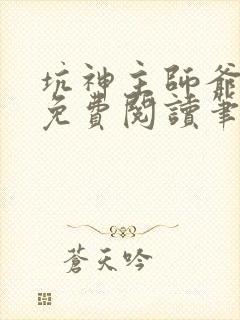 坑神主師爺
免費閱讀筆
蒼天吟